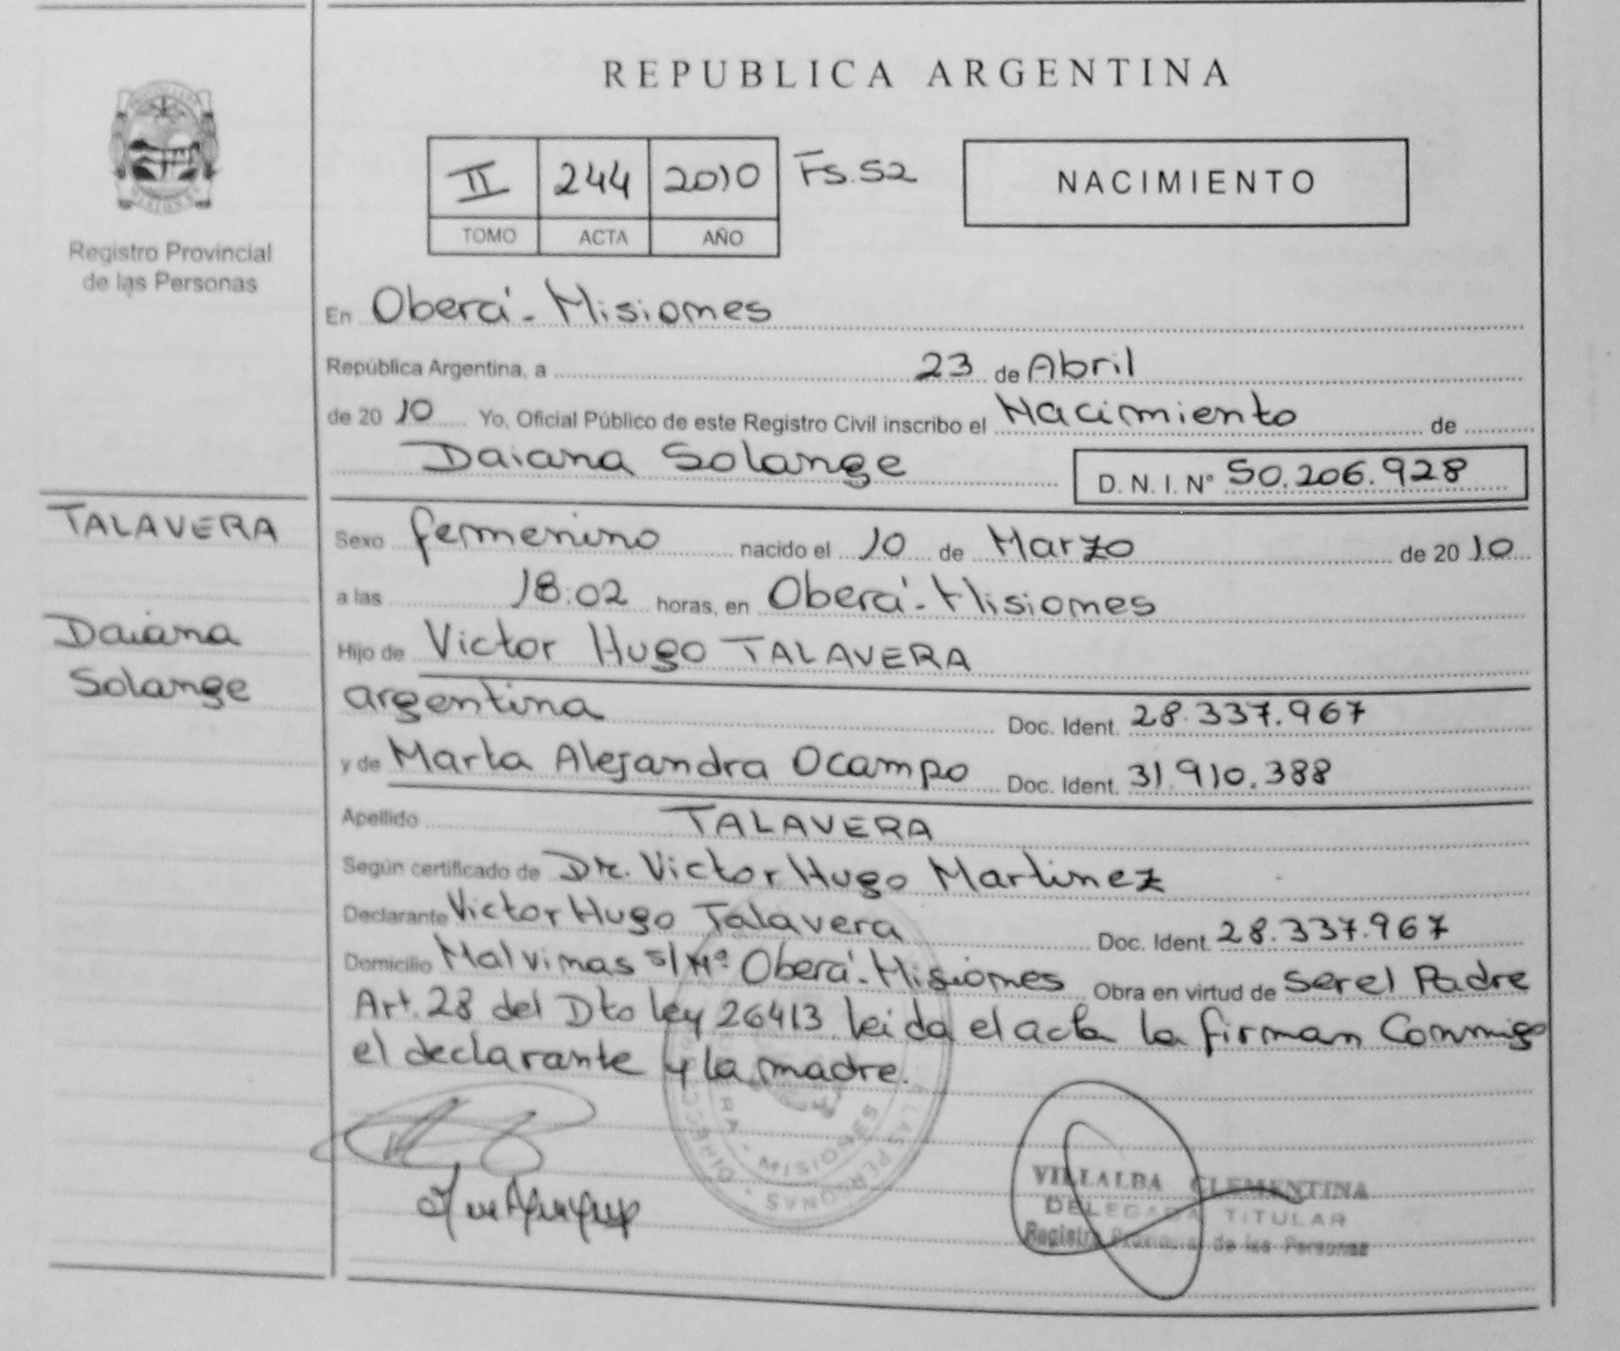 REPUBLICA ARGENTINA
II 244 2010 Fs. 52
TOMO ACTA AÑO
NACIMIENTO
Registro Provincial
de las Personas
En Oberá - Misiones
República Argentina, a 23 de Abril
de 20 10 Yo, Oficial Público de este Registro Civil inscribo el Nacimiento de
Daiana Solange D. N. I. N° 50.206.928
TALAVERA
Daiana
Solange
Sexo femenino nacido el 10 de Marzo de 20 10
a las 18:02 horas, en Oberá - Misiones
Hijo de Victor Hugo TALAVERA
argentina Doc. Ident. 28.337.967
y de Marta Alejandra Ocampo Doc. Ident. 31.910.388
Apellido TALAVERA
Según certificado de Dr. Victor Hugo Martinez
Declarante Victor Hugo Talavera Doc. Ident. 28.337.967
Domicilio Malvinas s/Nº Oberá - Misiones Obra en virtud de ser el Padre
Art. 28 del Dto ley 26413 leida el acta la firman Conmigo
el declarante y la madre.
MISIONES
PERSONAS
VILLALBA CLEMENTINA
DELEGADA TITULAR
Registro Provincial de las Personas